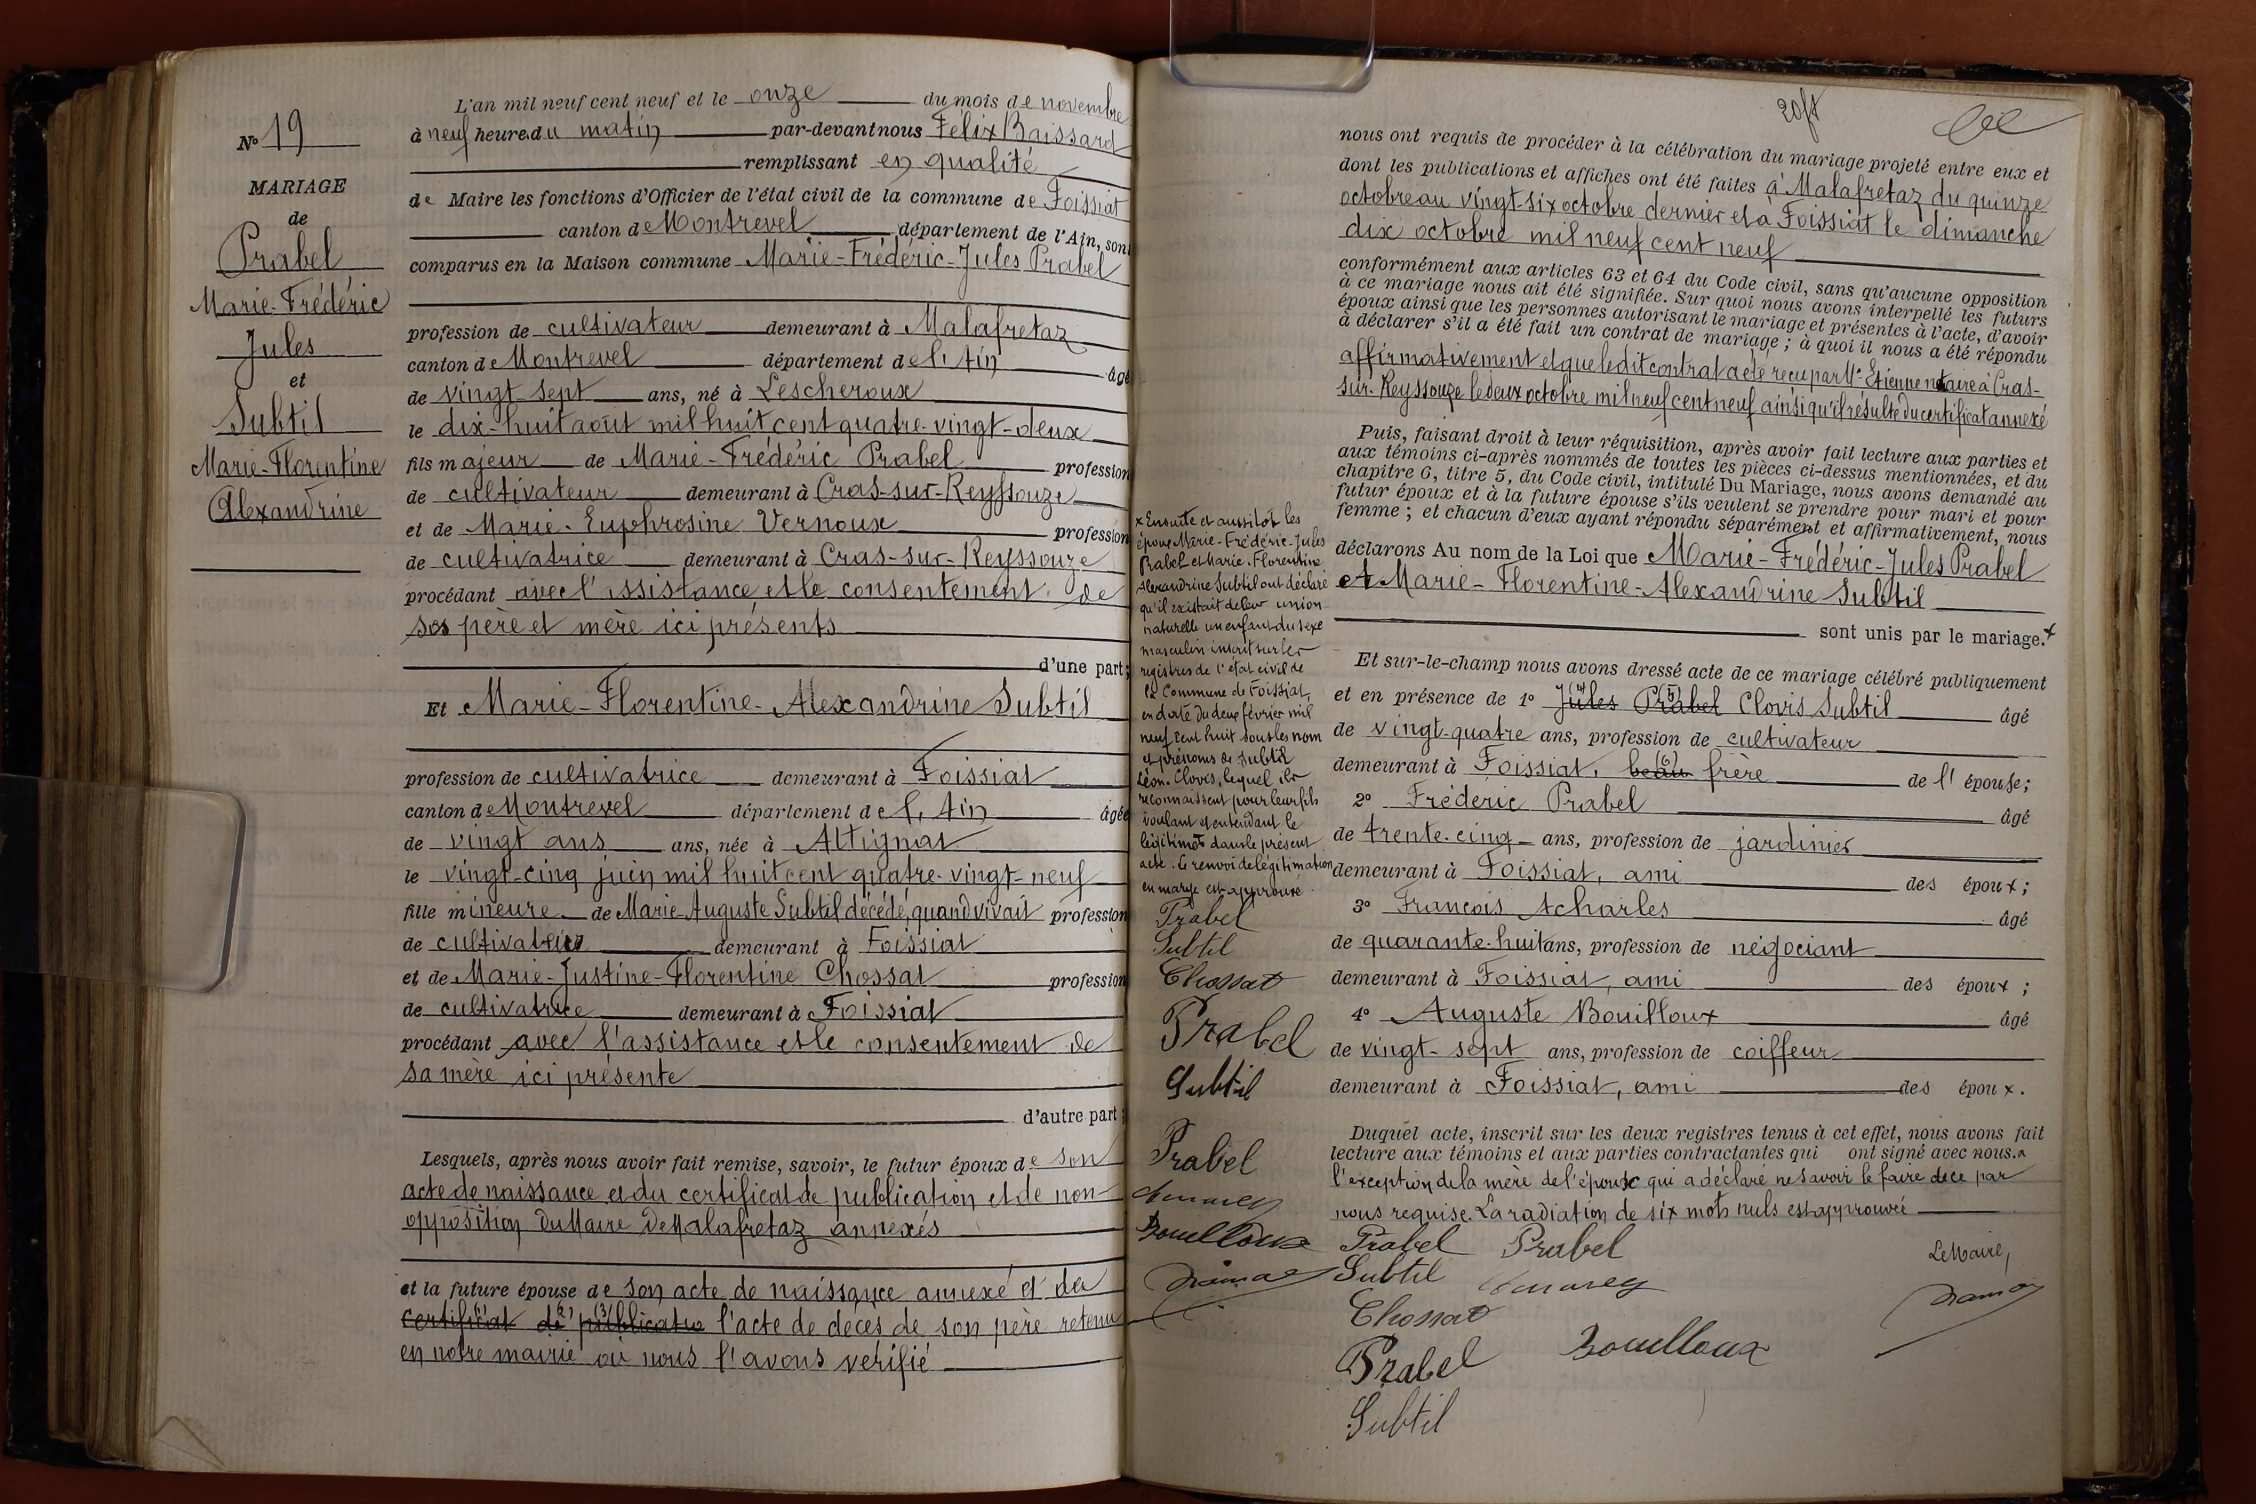 No 19
MARIAGE
de
Prabel
Marie-Frédéric
Jules
et
Subtil
Marie-Florentine
Alexandrine
L'an mil neuf cent neuf et le onze du mois de novembre
à neuf heures du matin par-devant nous Félix Baissard
remplissant en qualité
de Maire les fonctions d'Officier de l'état civil de la commune de Foissiat
canton de Montrevel département de l'Ain, sont
comparus en la Maison commune Marie-Frédéric-Jules Prabel
profession de cultivateur demeurant à Malafretaz
canton de Montrevel département de l'Ain âgé
de vingt-sept ans, né à Lescheroux
le dix-huit août mil huit cent quatre-vingt-deux
fils majeur de Marie-Frédéric Prabel profession
de cultivateur demeurant à Cras-sur-Reyssouze
et de Marie-Euphrosine Vernoux profession
de cultivatrice demeurant à Cras-sur-Reyssouze
procédant avec l'assistance et le consentement de
ses père et mère ici présents
d'une part;
Et Marie-Florentine-Alexandrine Subtil
profession de cultivatrice demeurant à Foissiat
canton de Montrevel département de l'Ain âgée
de vingt ans ans, née à Attignat
le vingt-cinq juin mil huit cent quatre-vingt-neuf
fille mineure de Marie-Auguste Subtil décédé, quand vivait profession
de cultivateur demeurant à Foissiat
et de Marie-Justine-Florentine Chossat profession
de cultivatrice demeurant à Foissiat
procédant avec l'assistance et le consentement de
sa mère ici présente
d'autre part;
Lesquels, après nous avoir fait remise, savoir, le futur époux de son
acte de naissance et du certificat de publication et de non-
opposition du Maire de Malafretaz annexés
et la future épouse de son acte de naissance annexé et de
certificat de publication l'acte de décès de son père retenu
en notre mairie où nous l'avons vérifié
x Ensuite et aussitôt les
époux Marie-Frédéric-Jules
Prabel et Marie-Florentine
Alexandrine Subtil ont déclaré
qu'il existait de leur union
naturelle un enfant du sexe
masculin inscrit sur les
registres de l'état civil de
la Commune de Foissiat,
en date du deux février mil
neuf cent huit sous les nom
et prénoms de Subtil
Léon-Clovis, lequel ils
reconnaissent pour leur fils
voulant et entendant le
légitimer dans le présent
acte. Le renvoi de légitimation
en marge est approuvé
Prabel
Subtil
Chossat
Prabel
Subtil
Prabel
Bouilloux
20 ft
nous ont requis de procéder à la célébration du mariage projeté entre eux et
dont les publications et affiches ont été faites à Malafretaz du quinze
octobre au vingt-six octobre dernier et à Foissiat le dimanche
dix octobre mil neuf cent neuf
conformément aux articles 63 et 64 du Code civil, sans qu'aucune opposition
à ce mariage nous ait été signifiée. Sur quoi nous avons interpellé les futurs
époux ainsi que les personnes autorisant le mariage et présentes à l'acte, d'avoir
à déclarer s'il a été fait un contrat de mariage; à quoi il nous a été répondu
affirmativement et que ledit contrat a été reçu par Me Etienne notaire à Cras-
sur-Reyssouze le deux octobre mil neuf cent neuf ainsi qu'il résulte du certificat annexé
Puis, faisant droit à leur réquisition, après avoir fait lecture aux parties et
aux témoins ci-après nommés de toutes les pièces ci-dessus mentionnées, et du
chapitre 6, titre 5, du Code civil, intitulé Du Mariage, nous avons demandé au
futur époux et à la future épouse s'ils veulent se prendre pour mari et pour
femme; et chacun d'eux ayant répondu séparément et affirmativement, nous
déclarons Au nom de la Loi que Marie-Frédéric-Jules Prabel
et Marie-Florentine-Alexandrine Subtil
sont unis par le mariage. x
Et sur-le-champ nous avons dressé acte de ce mariage célébré publiquement
et en présence de 1° Jules Prabel Clovis Subtil âgé
de vingt-quatre ans, profession de cultivateur
demeurant à Foissiat, beau frère de l'épouse;
2° Fréderic Prabel âgé
de trente-cinq ans, profession de jardinier
demeurant à Foissiat, ami des époux;
3° François Acharles âgé
de quarante-huit ans, profession de négociant
demeurant à Foissiat, ami des époux;
4° Auguste Bouilloux âgé
de vingt-sept ans, profession de coiffeur
demeurant à Foissiat, ami des époux.
Duquel acte, inscrit sur les deux registres tenus à cet effet, nous avons fait
lecture aux témoins et aux parties contractantes qui ont signé avec nous. à
l'exception de la mère de l'épouse qui a déclaré ne savoir le faire de ce par
nous requise. La radiation de six mots nuls est approuvée
Prabel Prabel Le Maire,
Subtil
Chossat
Prabel Bouilloux
Subtil